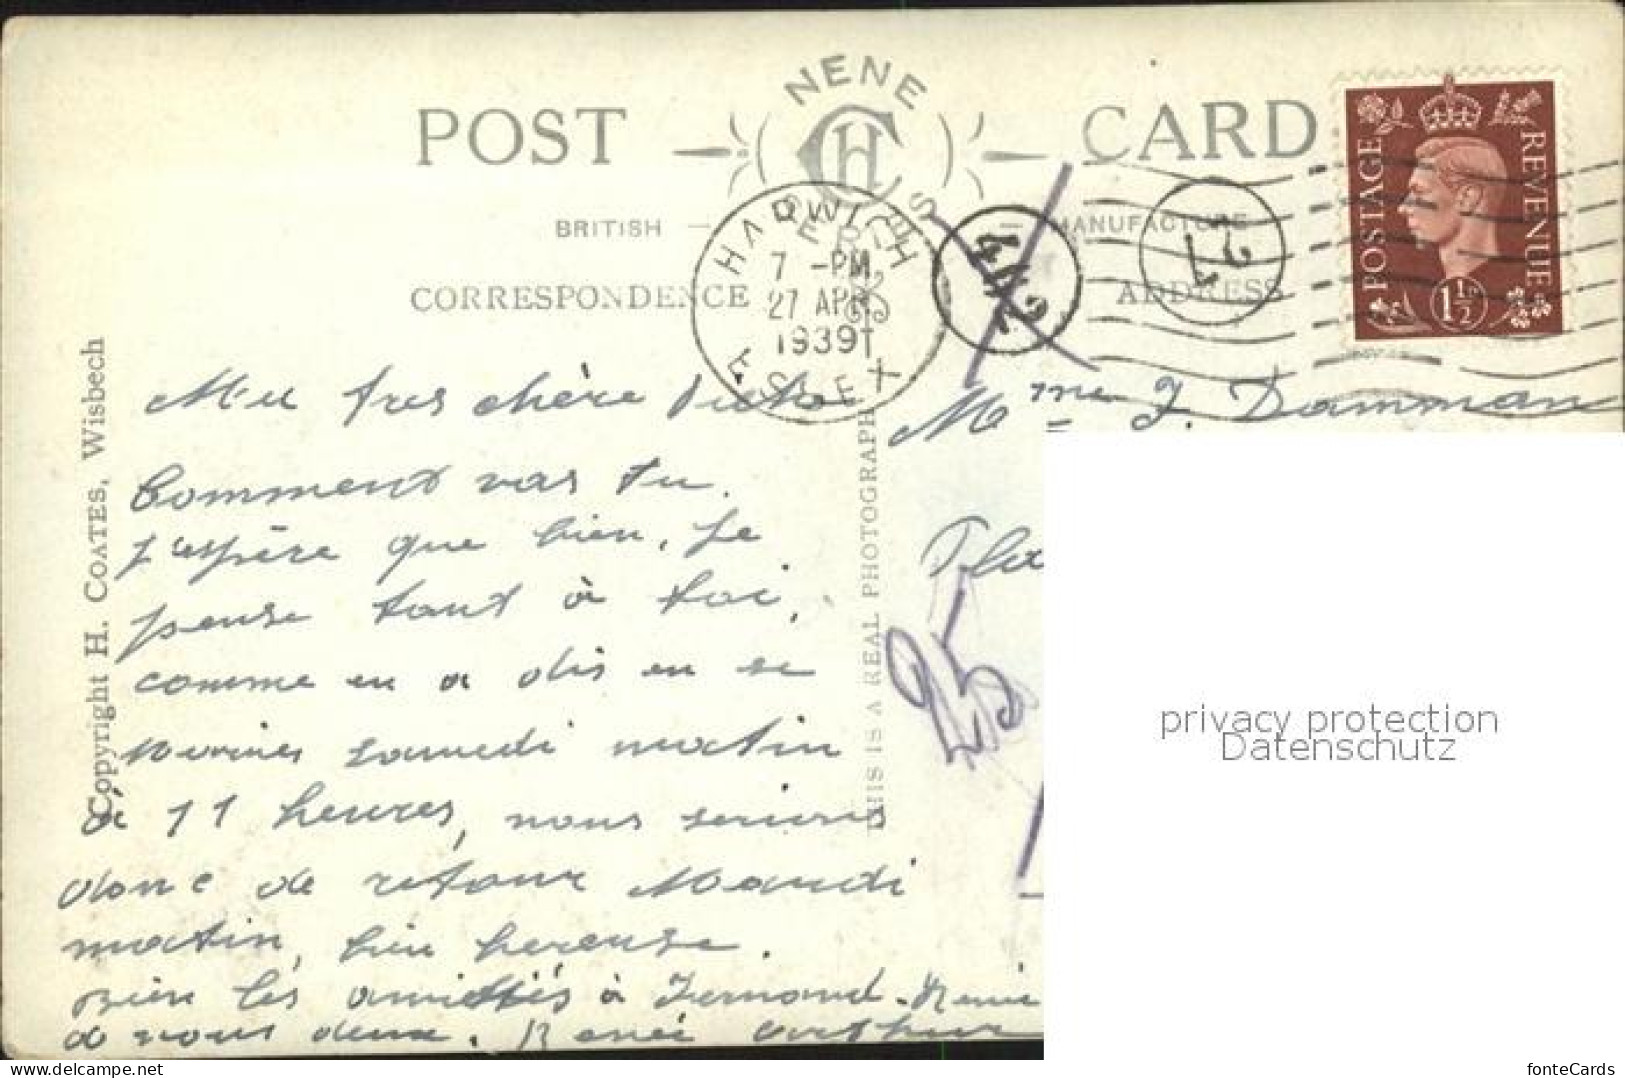 NENE
CH
SERIES
POST CARD
BRITISH MANUFACTURE
CORRESPONDENCE
ADDRESS
HARWICH
7 - PM
27 APR
1939
ESSEX
27
POSTAGE REVENUE
1½
Copyright H. COATES, Wisbech
THIS IS A REAL PHOTOGRAPH
très chère
Comment vas tu.
j'espère que bien. Je
pense tant à toi,
comme en a dis en se
samedi matin
à 11 heures, nous serions
donc de retour Mardi
matin, bien hereuse.
bien les amitiés à Fernand. Renée
a vous deux. Renée Arthur
Mme J. Damman
25
privacy protection
Datenschutz
www.delcampe.net
fonteCards